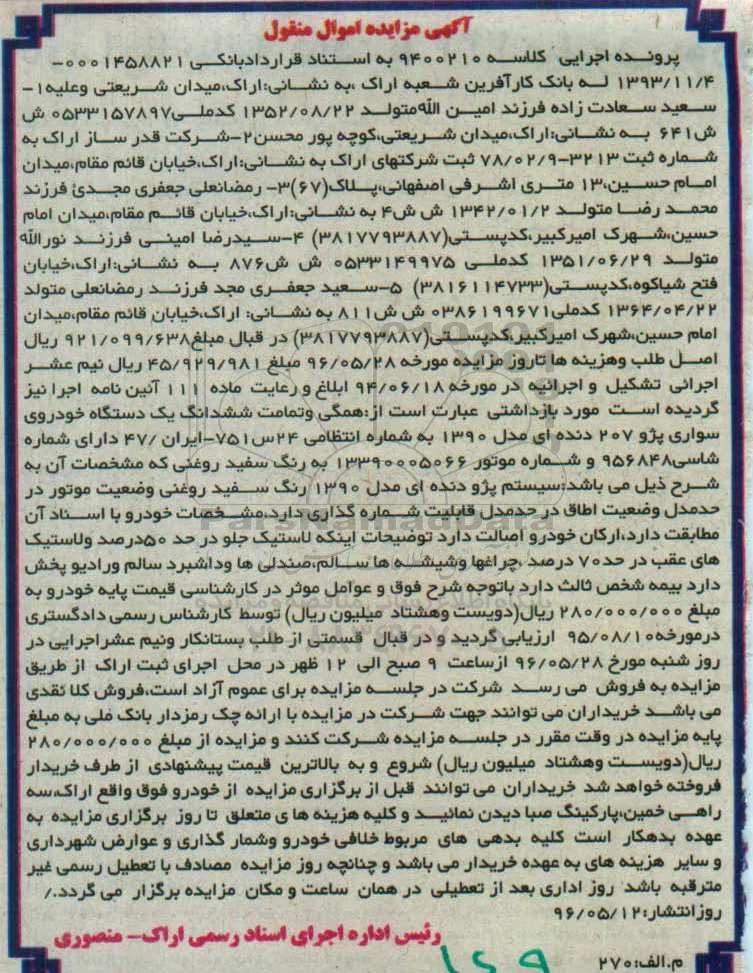 آگهی مزایده اموال منقول
پرونده اجرایی کلاسه ۹۴۰۰۲۱۰ به استناد قراردادبانکی ۰۰۰۱۴۵۸۸۲۱-
۱۳۹۳/۱۱/۴ له بانک کارآفرین شعبه اراک ،به نشانی:اراک،میدان شریعتی وعلیه۱-
سعید سعادت زاده فرزند امین الله متولد ۱۳۵۲/۰۸/۲۲ کدملی۰۵۳۳۱۵۷۸۹۷ ش
ش۶۴۱ به نشانی:اراک،میدان شریعتی،کوچه پور محسن۲-شرکت قدر ساز اراک به
شماره ثبت ۳۲۱۳-۷۸/۰۲/۹ ثبت شرکتهای اراک به نشانی:اراک،خیابان قائم مقام،میدان
امام حسین،۱۳ متری اشرفی اصفهانی،پلاک(۶۷)۳- رمضانعلی جعفری مجدئ فرزند
محمد رضا متولد ۱۳۴۲/۰۱/۲ ش ش۴ به نشانی:اراک،خیابان قائم مقام،میدان امام
حسین،شهرک امیرکبیر،کدپستی(۳۸۱۷۷۹۳۸۸۷) ۴-سیدرضا امینی فرزند نورالله
متولد ۱۳۵۱/۰۶/۲۹ کدملی ۰۵۳۳۱۴۹۹۷۵ ش ش۸۷۶ به نشانی:اراک،خیابان
فتح شیاکوه،کدپستی(۳۸۱۶۱۱۴۷۳۳) ۵-سعید جعفری مجد فرزند رمضانعلی متولد
۱۳۶۴/۰۴/۲۲ کدملی۰۳۸۶۱۹۹۶۷۱ ش ش۸۱۱ به نشانی: اراک،خیابان قائم مقام،میدان
امام حسین،شهرک امیرکبیر،کدپستی(۳۸۱۷۷۹۳۸۸۷) در قبال مبلغ۹۲۱/۰۹۹/۶۳۸ ریال
اصل طلب وهزینه ها تاروز مزایده مورخه ۹۶/۰۵/۲۸ مبلغ ۴۵/۹۲۹/۹۸۱ ریال نیم عشر
اجرائی تشکیل و اجرائیه در مورخه ۹۴/۰۶/۱۸ ابلاغ و رعایت ماده ۱۱۱ آئین نامه اجرا نیز
گردیده است مورد بازداشتی عبارت است از:همگی وتمامت ششدانگ یک دستگاه خودروی
سواری پژو ۲۰۷ دنده ای مدل ۱۳۹۰ به شماره انتظامی ۲۴س۷۵۱-ایران /۴۷ دارای شماره
شاسی۹۵۶۸۴۸ و شماره موتور ۱۳۳۹۰۰۰۵۰۶۶ به رنگ سفید روغنی که مشخصات آن به
شرح ذیل می باشد:سیستم پژو دنده ای مدل ۱۳۹۰ رنگ سفید روغنی وضعیت موتور در
حدمدل وضعیت اطاق در حدمدل قابلیت شماره گذاری دارد،مشخصات خودرو با اسناد آن
مطابقت دارد،ارکان خودرو اصالت دارد توضیحات اینکه لاستیک جلو در حد ۵۰درصد ولاستیک
های عقب در حد۷۰ درصد ،چراغها وشیشه ها سالم،صندلی ها وداشبرد سالم ورادیو پخش
دارد بیمه شخص ثالث دارد باتوجه شرح فوق و عوامل موثر در کارشناسی قیمت پایه خودرو به
مبلغ ۲۸۰/۰۰۰/۰۰۰ ریال(دویست وهشتاد میلیون ریال) توسط کارشناس رسمی دادگستری
درمورخه۹۵/۰۸/۱۰ ارزیابی گردید و در قبال قسمتی از طلب بستانکار ونیم عشراجرایی در
روز شنبه مورخ ۹۶/۰۵/۲۸ ازساعت ۹ صبح الی ۱۲ ظهر در محل اجرای ثبت اراک از طریق
مزایده به فروش می رسد شرکت در جلسه مزایده برای عموم آزاد است،فروش کلا نقدی
می باشد خریداران می توانند جهت شرکت در مزایده با ارائه چک رمزدار بانک ملی به مبلغ
پایه مزایده در وقت مقرر در جلسه مزایده شرکت کنند و مزایده از مبلغ ۲۸۰/۰۰۰/۰۰۰
ریال(دویست وهشتاد میلیون ریال) شروع و به بالاترین قیمت پیشنهادی از طرف خریدار
فروخته خواهد شد خریداران می توانند قبل از برگزاری مزایده از خودرو فوق واقع اراک،سه
راهی خمین،پارکینگ صبا دیدن نمائید و کلیه هزینه ها ی متعلق تا روز برگزاری مزایده به
عهده بدهکار است کلیه بدهی های مربوط خلافی خودرو وشمار گذاری و عوارض شهرداری
و سایر هزینه های به عهده خریدار می باشد و چنانچه روز مزایده مصادف با تعطیل رسمی غیر
مترقبه باشد روز اداری بعد از تعطیلی در همان ساعت و مکان مزایده برگزار می گردد./
روزانتشار:۹۶/۰۵/۱۲
رئیس اداره اجرای اسناد رسمی اراک- منصوری
م.الف:۲۷۰
ParsNamadData